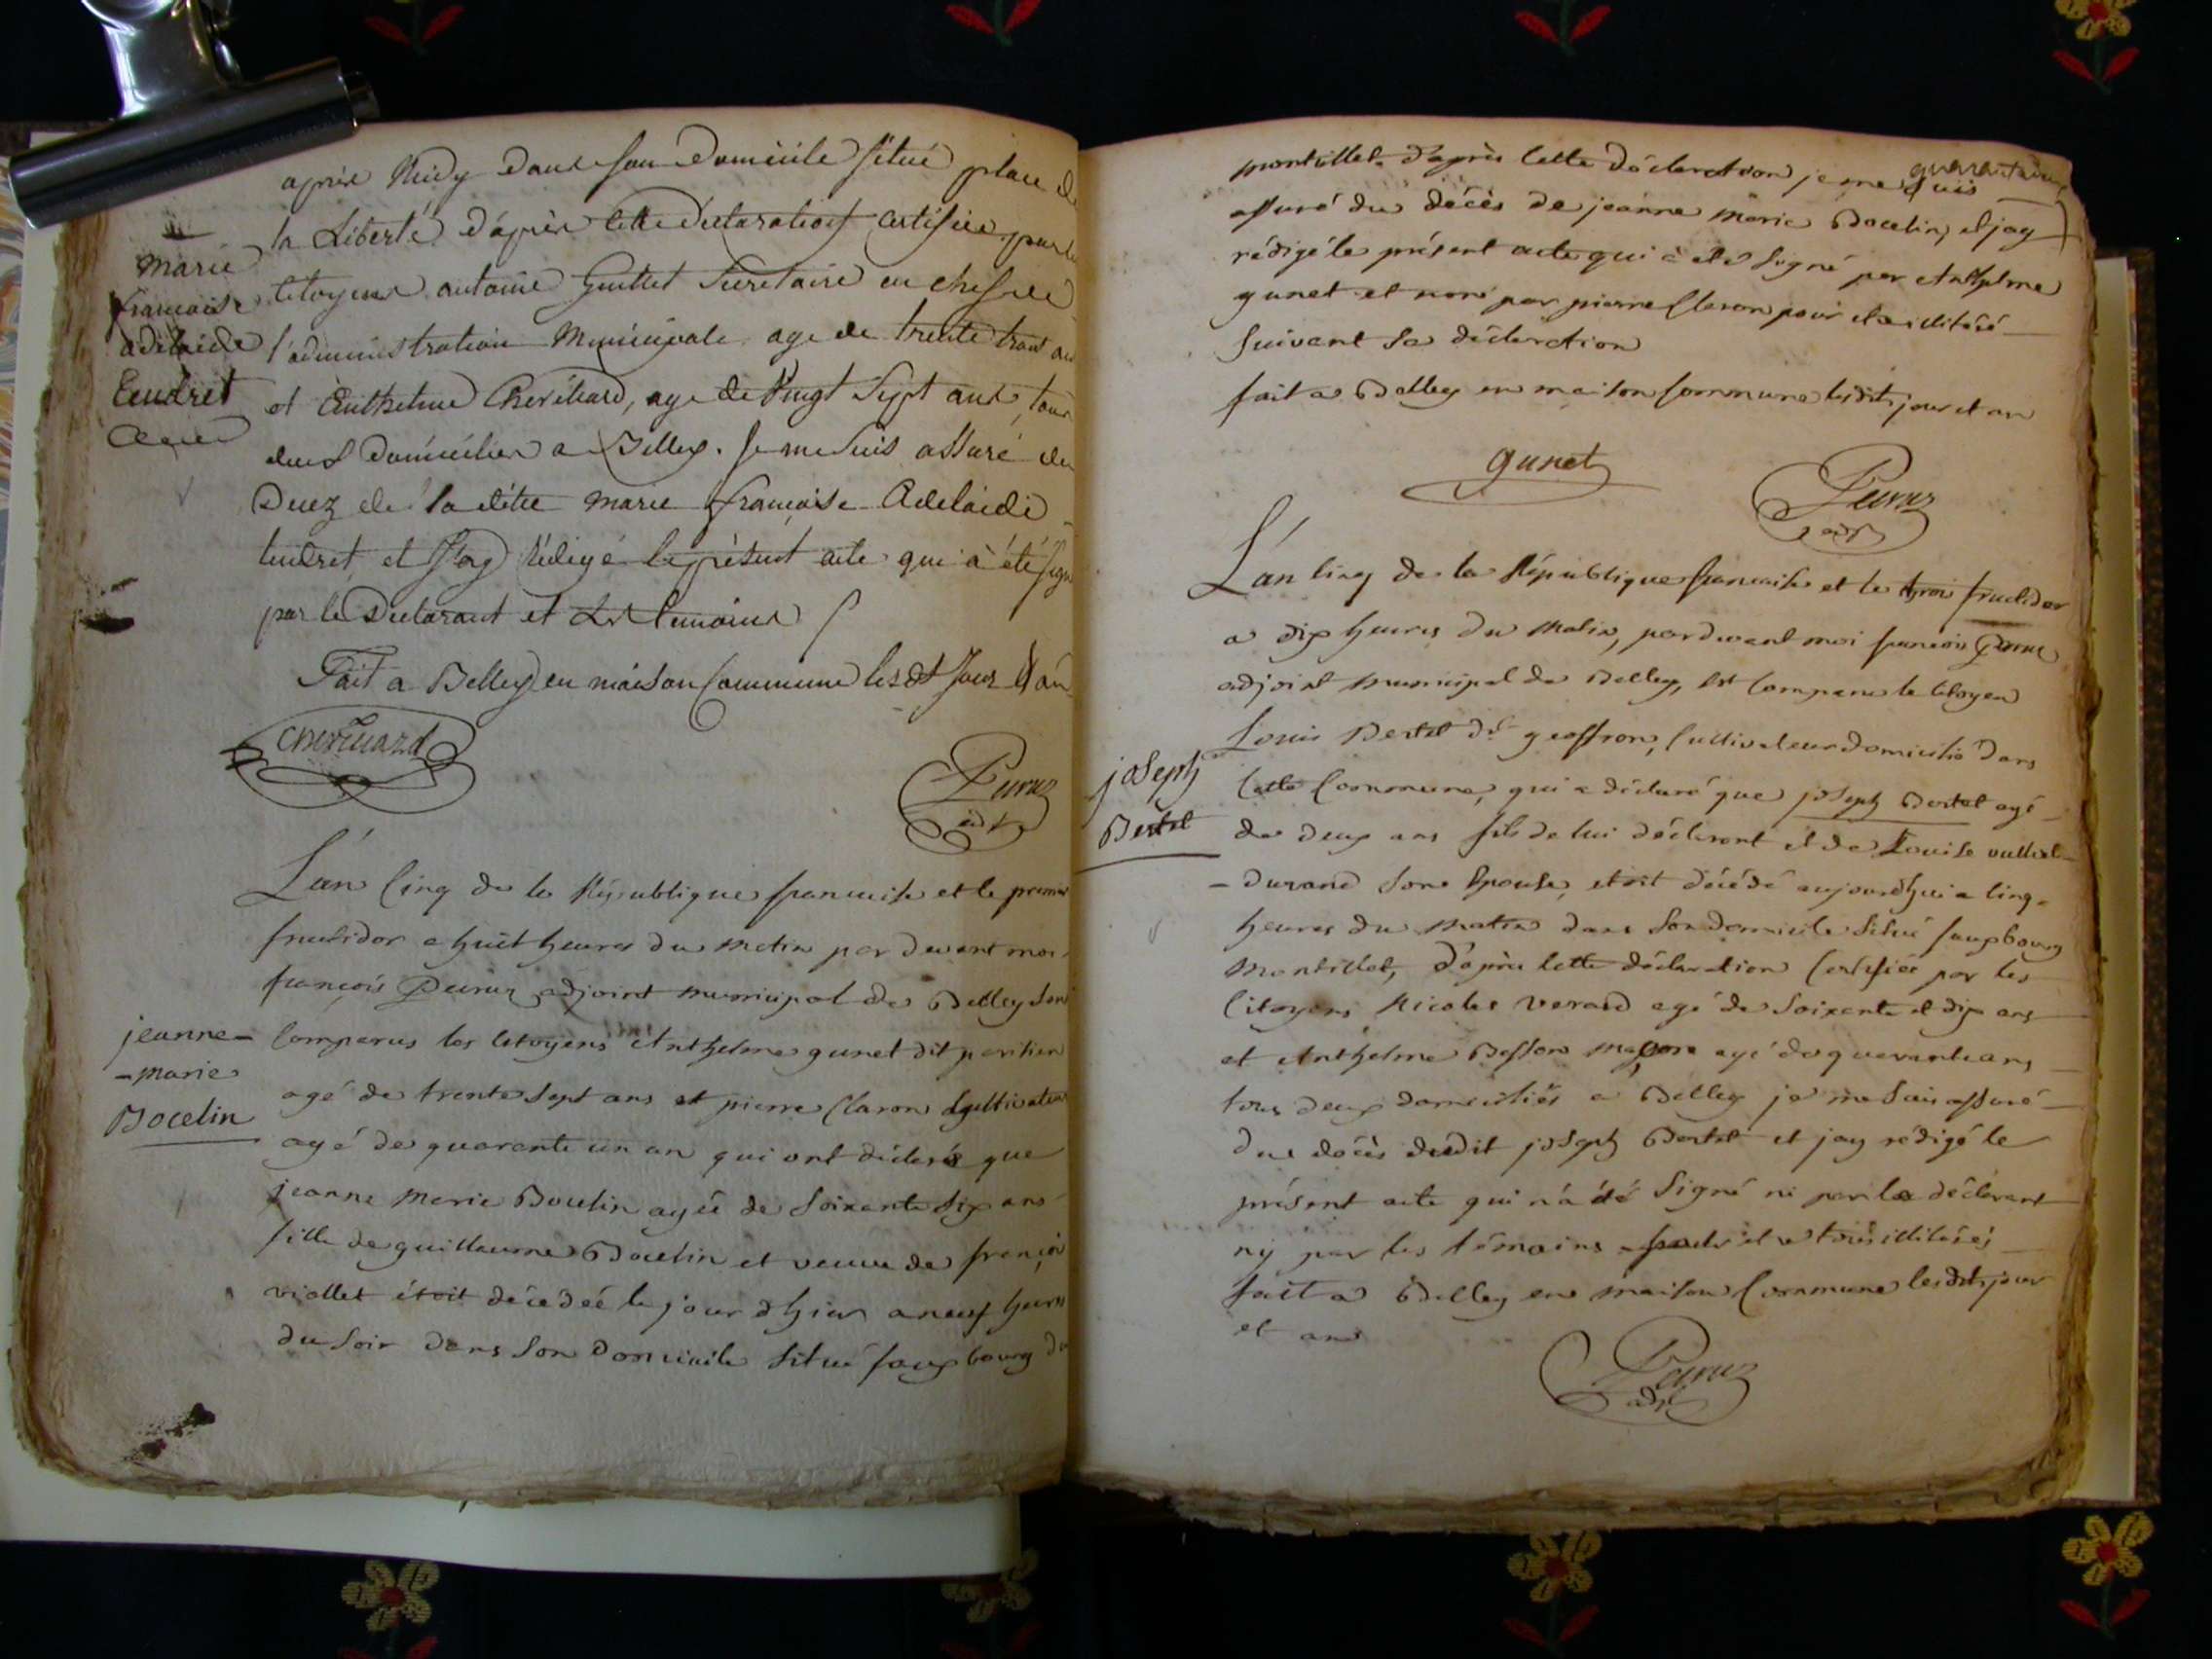 après Midy dans son domicile situé place de
la Liberté. d'après cette declaration certifiée par les
marie
françoise
adelaide
Tendret
citoyens antoine Guillet Secretaire en chef de
l'administration Municipale age de trente trois ans
et Anthelme Cherchard, age de Vingt Sept ans, tous
deux domiciliés a Belley. Je me suis assuré du
Decez de la ditte marie françoise Adelaide
tendret et J'ay Rédigé le présent acte qui à été signé
par le Declarant et Les temoins
Fait a Belley en maison Commune les dt Jour et an
Peruz
adj
L'an Cinq de la République francaise et le premier
fructidor a huit heures du matin par devant moi
françois Peruz adjoint municipal de Belley sont
jeanne-
-marie
Bocelin
Comparus les Citoyens Anthelme gunet dit
agé de trente sept ans et pierre Claron Cultivateur
agé de quarante un an qui ont déclaré que
jeanne Marie Bocelin agée de Soixante dix ans
fille de guillaume Bocelin et veuve de françois
viollet étoit décedée le jour d'hier a neuf heures
du soir dans son Domicile situé fauxbourg du
montillet. d'après cette déclaration je me suis
assuré du décès de jeanne Marie Bocelin, et jay
rédigé le présent acte qui à eté signé par Anthelme
gunet et non par pierre Claron pour
suivant sa déclaration
fait a Belley en maison Commune lesdits jour et an
gunet
Peruz
adj
L'an Cinq de la République francaise et le trois fructidor
a dix heures du Matin, pardevant moi francois Peruz
adjoint municipal de Belley, est Comparu le Citoyen
Louis Bertet dt geoffron, Cultivateur domicilié dans
joseph
Bertet
Cette Commune, qui a déclaré que joseph Bertet agé
de deux ans fils de lui déclarant et de Louise
-durand son Epouse, etoit décédé aujourdhui a Cinq
heures du Matin dans son domicile situé fauxbourg
Montillet, d'après cette déclaration Certifiée par les
Citoyens Nicolas verard agé de Soixante et dix ans
et Anthelme Besson Maçon agé de quarante ans
tous deux domiciliés a Belley je me suis assuré
du décès dudit joseph Bertet et jay rédigé le
présent acte qui n'a été Signé ni par le déclarant
ny par les témoins
fait a Belley en maison Commune lesdits jour
et an
Peruz
adj